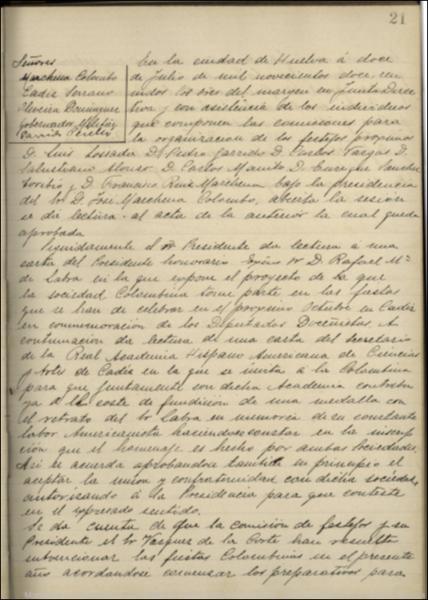 21
Señores
Marchena Colombo
Cadiz Serrano
Oliveira Dominguez
Gobernador Militar
Garrido Perelló
En la ciudad de Huelva á doce
de Julio de mil novecientos doce, reu
nidos los Sres del margen en Junta Direc
tiva y con asistencia de los individuos
que componen las comisiones para
la organizacion de los festejos proximos
D. Luis Lossada D. Pedro Garrido D. Carlos Vargas D.
Salustiano Alonso D. Carlos Mauito D. Enrique Sanchez
Toribio y D. Francisco Ruiz Marchena bajo la presidencia
del Sr D. José Marchena Colombo, abierta la sesion
se dio lectura al acta de la anterior la cual queda
aprobada
Seguidamente el Sr Presidente da lectura á una
carta del Presidente honorario Excmo Sr D. Rafael Mª
de Labra en la que expone el proyecto de la que
la sociedad Colombina tome parte en las fiestas
que se han de celebrar en el proximo Octubre en Cadiz
en conmemoracion de los Diputados Doceñistas. A
continuacion da lectura de una carta del secretario
de la Real Academia Hispano Americana de Ciencias
y Artes de Cadiz en la que se invita á la Colombina
para que juntamente con dicha Academia contribu
ya á la coste de fundicion de una medalla con
el retrato del Sr Labra en memoria de su constante
labor Americanista haciendose constar en la inscrip
cion que el homenaje es hecho por ambas Sociedades.
Asi se acuerda aprobandose tambien en principio el
aceptar la union y confraternidad con dicha sociedad,
autorizando á la Presidencia para que conteste
en el expresado sentido.
Se da cuenta de que la comision de festejos y su
Presidente el Sr Vazquez de la Corte han resuelto
subvencionar las fiestas Colombinas en el presente
año acordandose comenzar los preparativos para